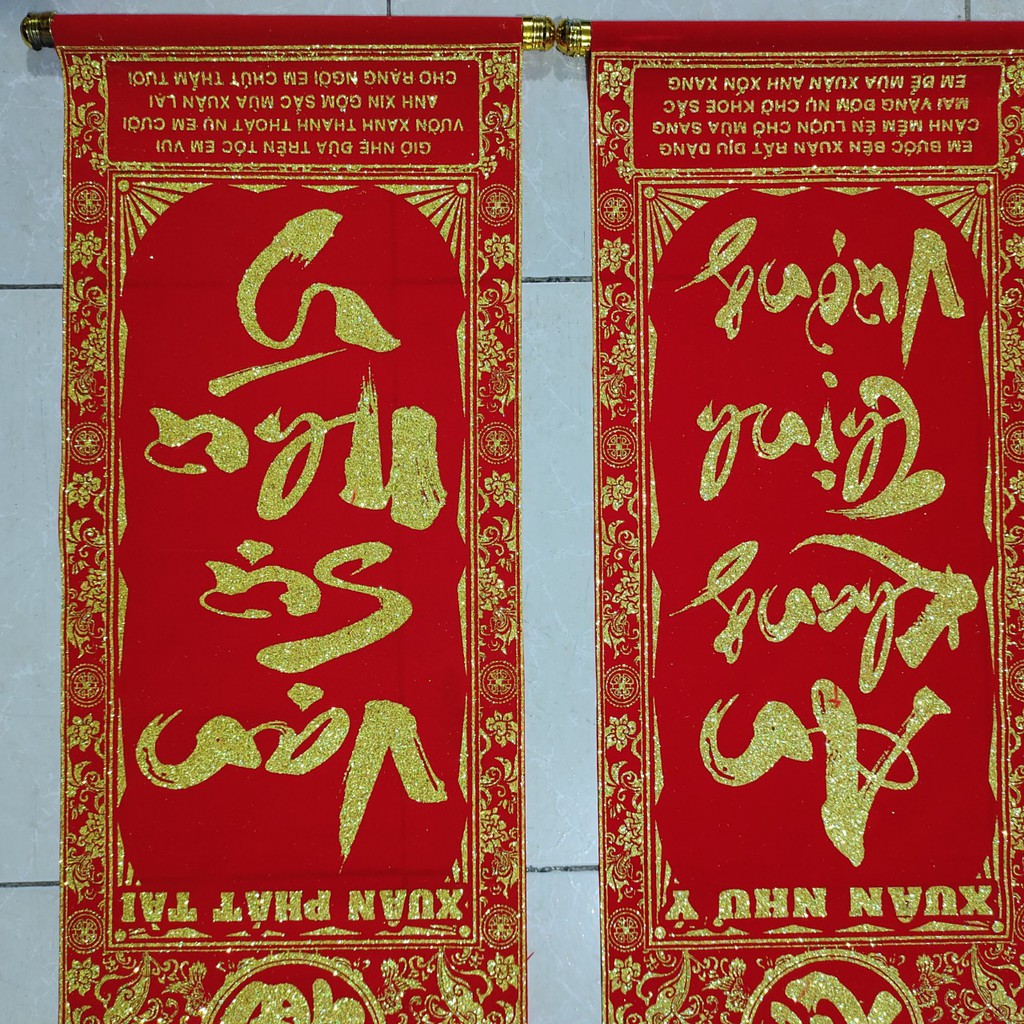 XUÂN NHƯ Ý
An
Khang
Thịnh
Vượng
EM BƯỚC BÊN XUÂN RẤT DỊU DÀNG
CÁNH MỀM ÉN LƯỢN CHỞ MÙA SANG
MAI VÀNG ĐƠM NỤ CHỜ KHOE SẮC
EM ĐỂ MÙA XUÂN ANH XỐN XANG
XUÂN PHÁT TÀI
Vạn
Sự
Như
Ý
GIÓ NHẸ ĐÙA TRÊN TÓC EM VUI
VƯỜN XANH THANH THOÁT NỤ EM CƯỜI
ANH XIN GÓM SẮC MÙA XUÂN LẠI
CHO RẠNG NGỜI EM CHÚT THẮM TƯƠI